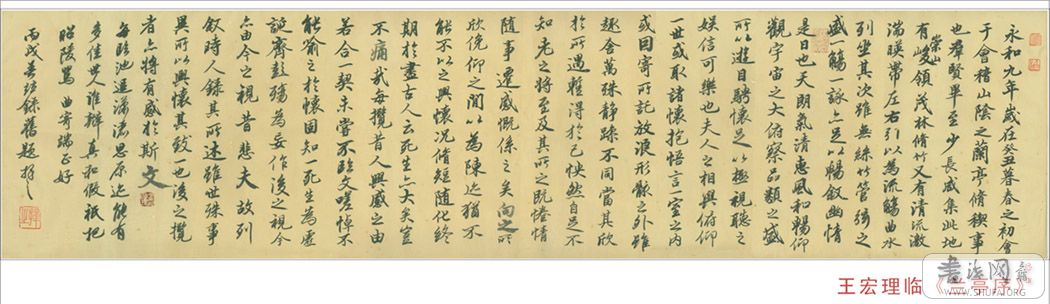 永和九年歲在癸丑暮春之初會
于會稽山陰之蘭亭脩稧事
也羣賢畢至少長咸集此地
有崇山峻領茂林脩竹又有清流激
湍暎帶左右引以為流觴曲水
列坐其次雖無絲竹管弦之
盛一觴一詠亦足以暢敘幽情
是日也天朗氣清惠風和暢仰
觀宇宙之大俯察品類之盛
所以遊目騁懷足以極視聽之
娛信可樂也夫人之相與俯仰
一世或取諸懷抱悟言一室之內
或因寄所託放浪形骸之外雖
趣舍萬殊靜躁不同當其欣
於所遇暫得於己怏然自足不
知老之將至及其所之既惓情
隨事遷感慨係之矣向之所
欣俛仰之間以為陳迹猶不
能不以之興懷況脩短隨化終
期於盡古人云死生亦大矣豈
不痛哉每攬昔人興感之由
若合一契未嘗不臨文嗟悼不
能喻之於懷固知一死生為虛
誕齊彭殤為妄作後之視今
亦由今之視昔悲夫故列
敘時人錄其所述雖世殊事
異所以興懷其致一也後之攬
者亦將有感於斯文
每臨池思原迹能有
多佳世人誰辨真和假祇把
昭陵罵曲寄端正好
丙戌春錄舊題
王宏理临《兰亭序》
書法网
WWW.SHUFA.ORG